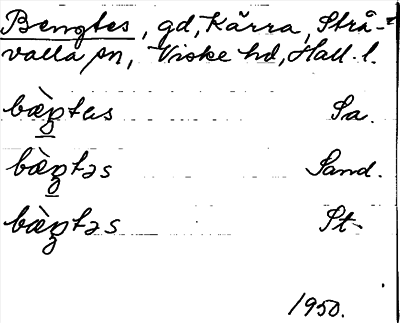 Bengtes, gd, Kärra, Strå-
valla sn, Viske hd, Hall. l.
bæ̀ŋtas Sa.
bæ̀ŋtəs Sand.
bæ̀ŋtəs St.
1950.